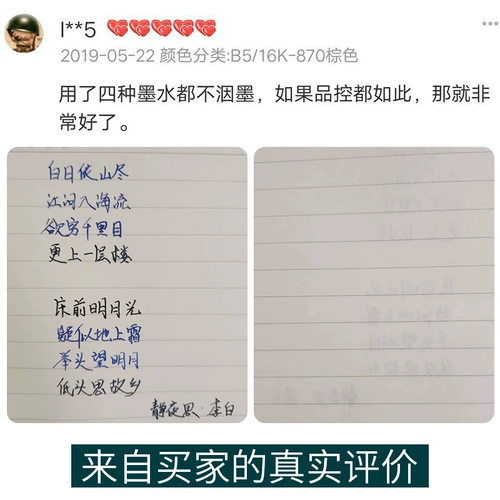 l**5
2019-05-22 颜色分类:B5/16K-870棕色
用了四种墨水都不洇墨，如果品控都如此，那就非
常好了。
白日依山尽
江河入海流
欲穷千里目
更上一层楼
床前明月光
疑似地上霜
举头望明月
低头思故乡
静夜思·李白
来自买家的真实评价